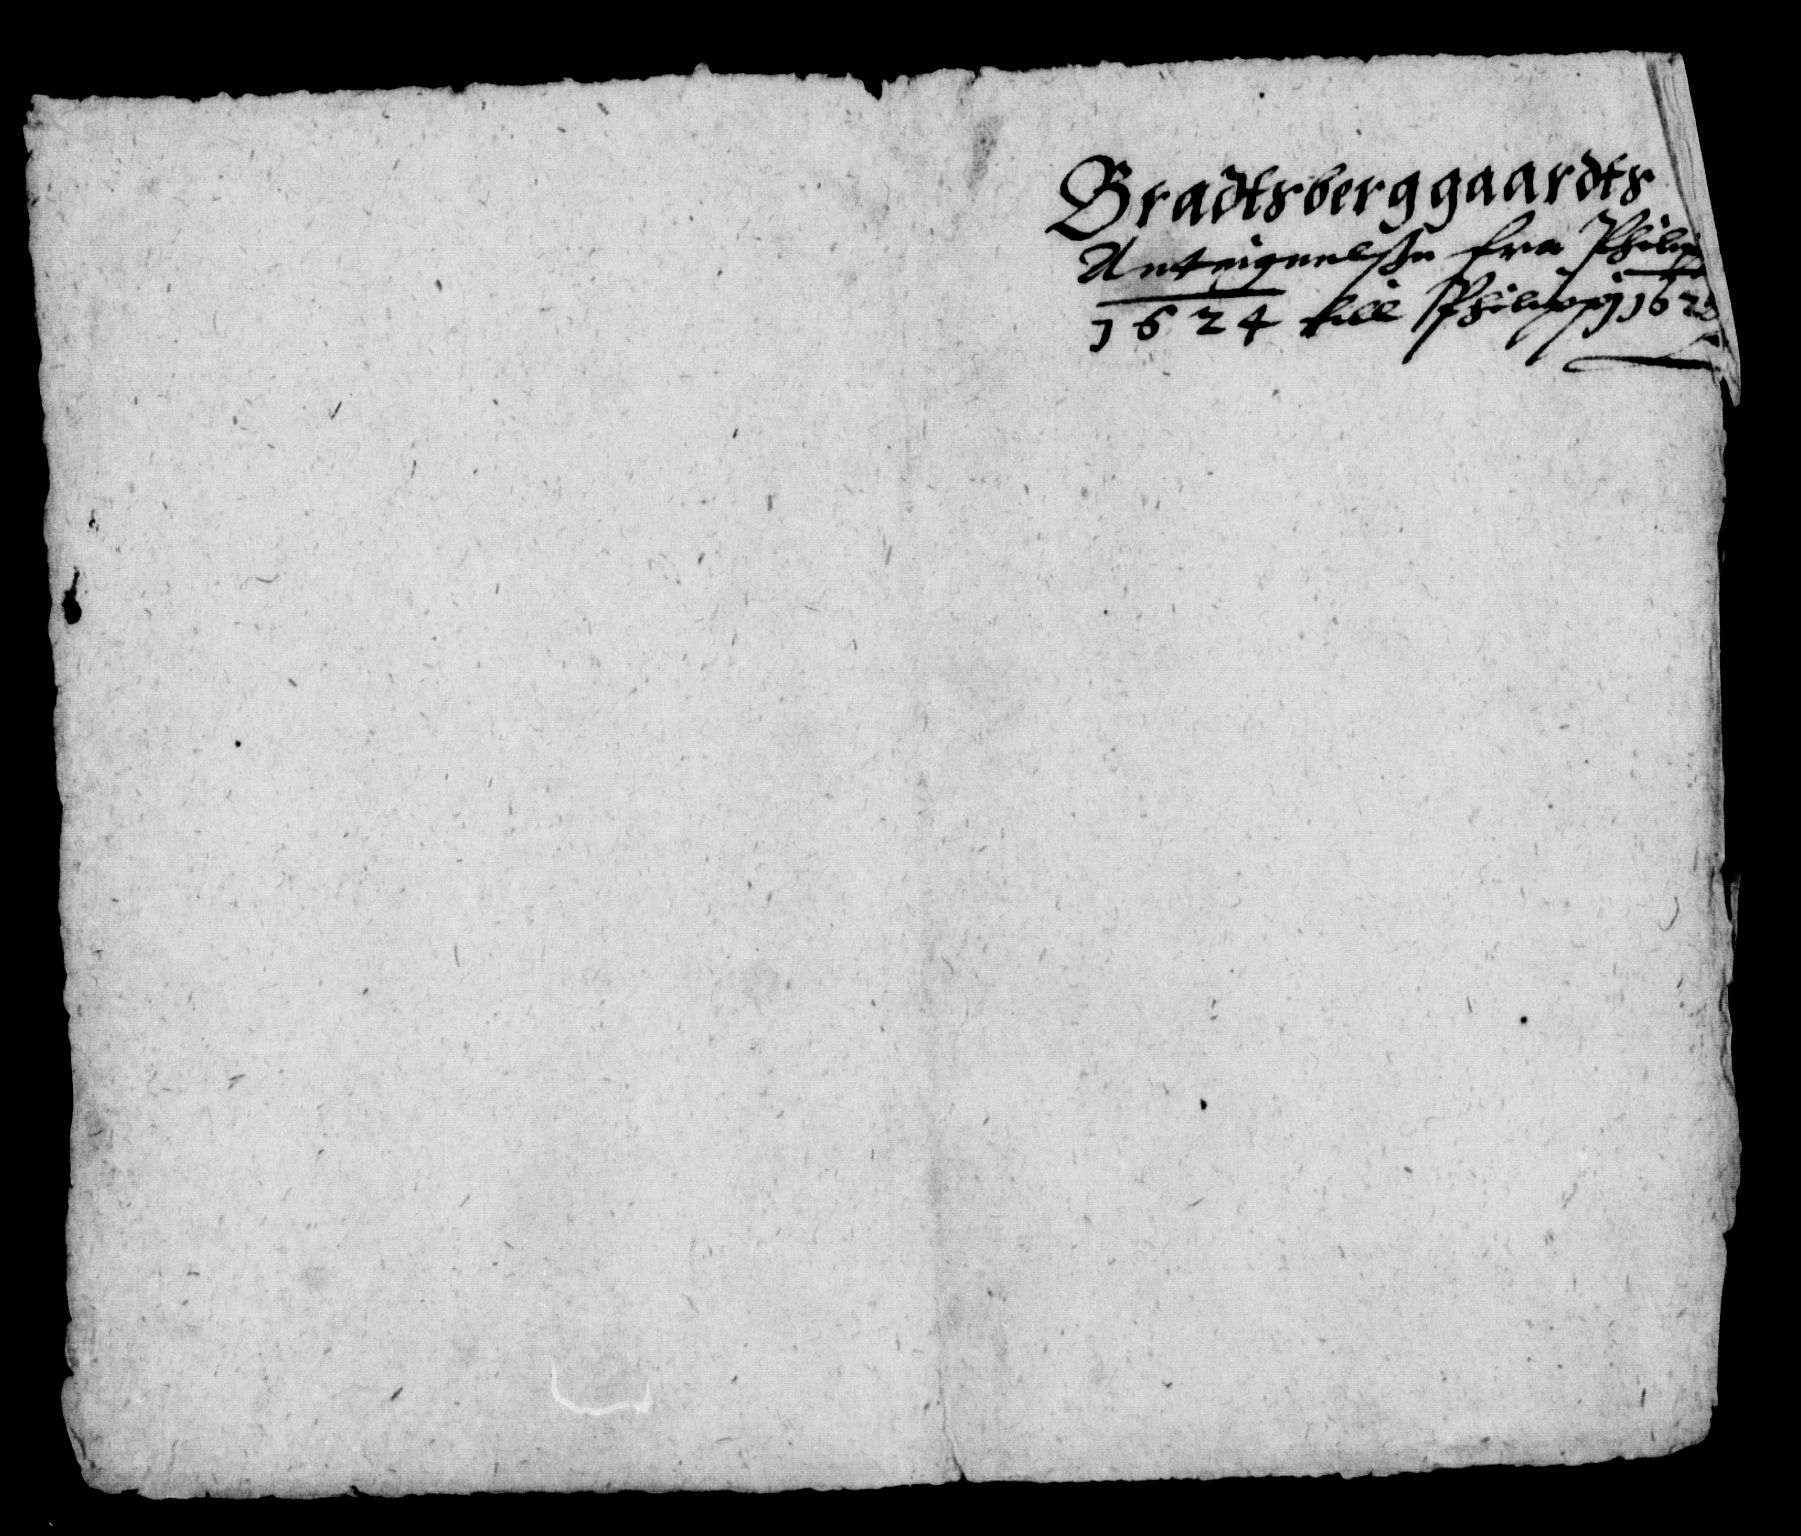 Bradtsberggaardts
Anteignelsse fra Philip
1624 till Philippj 162